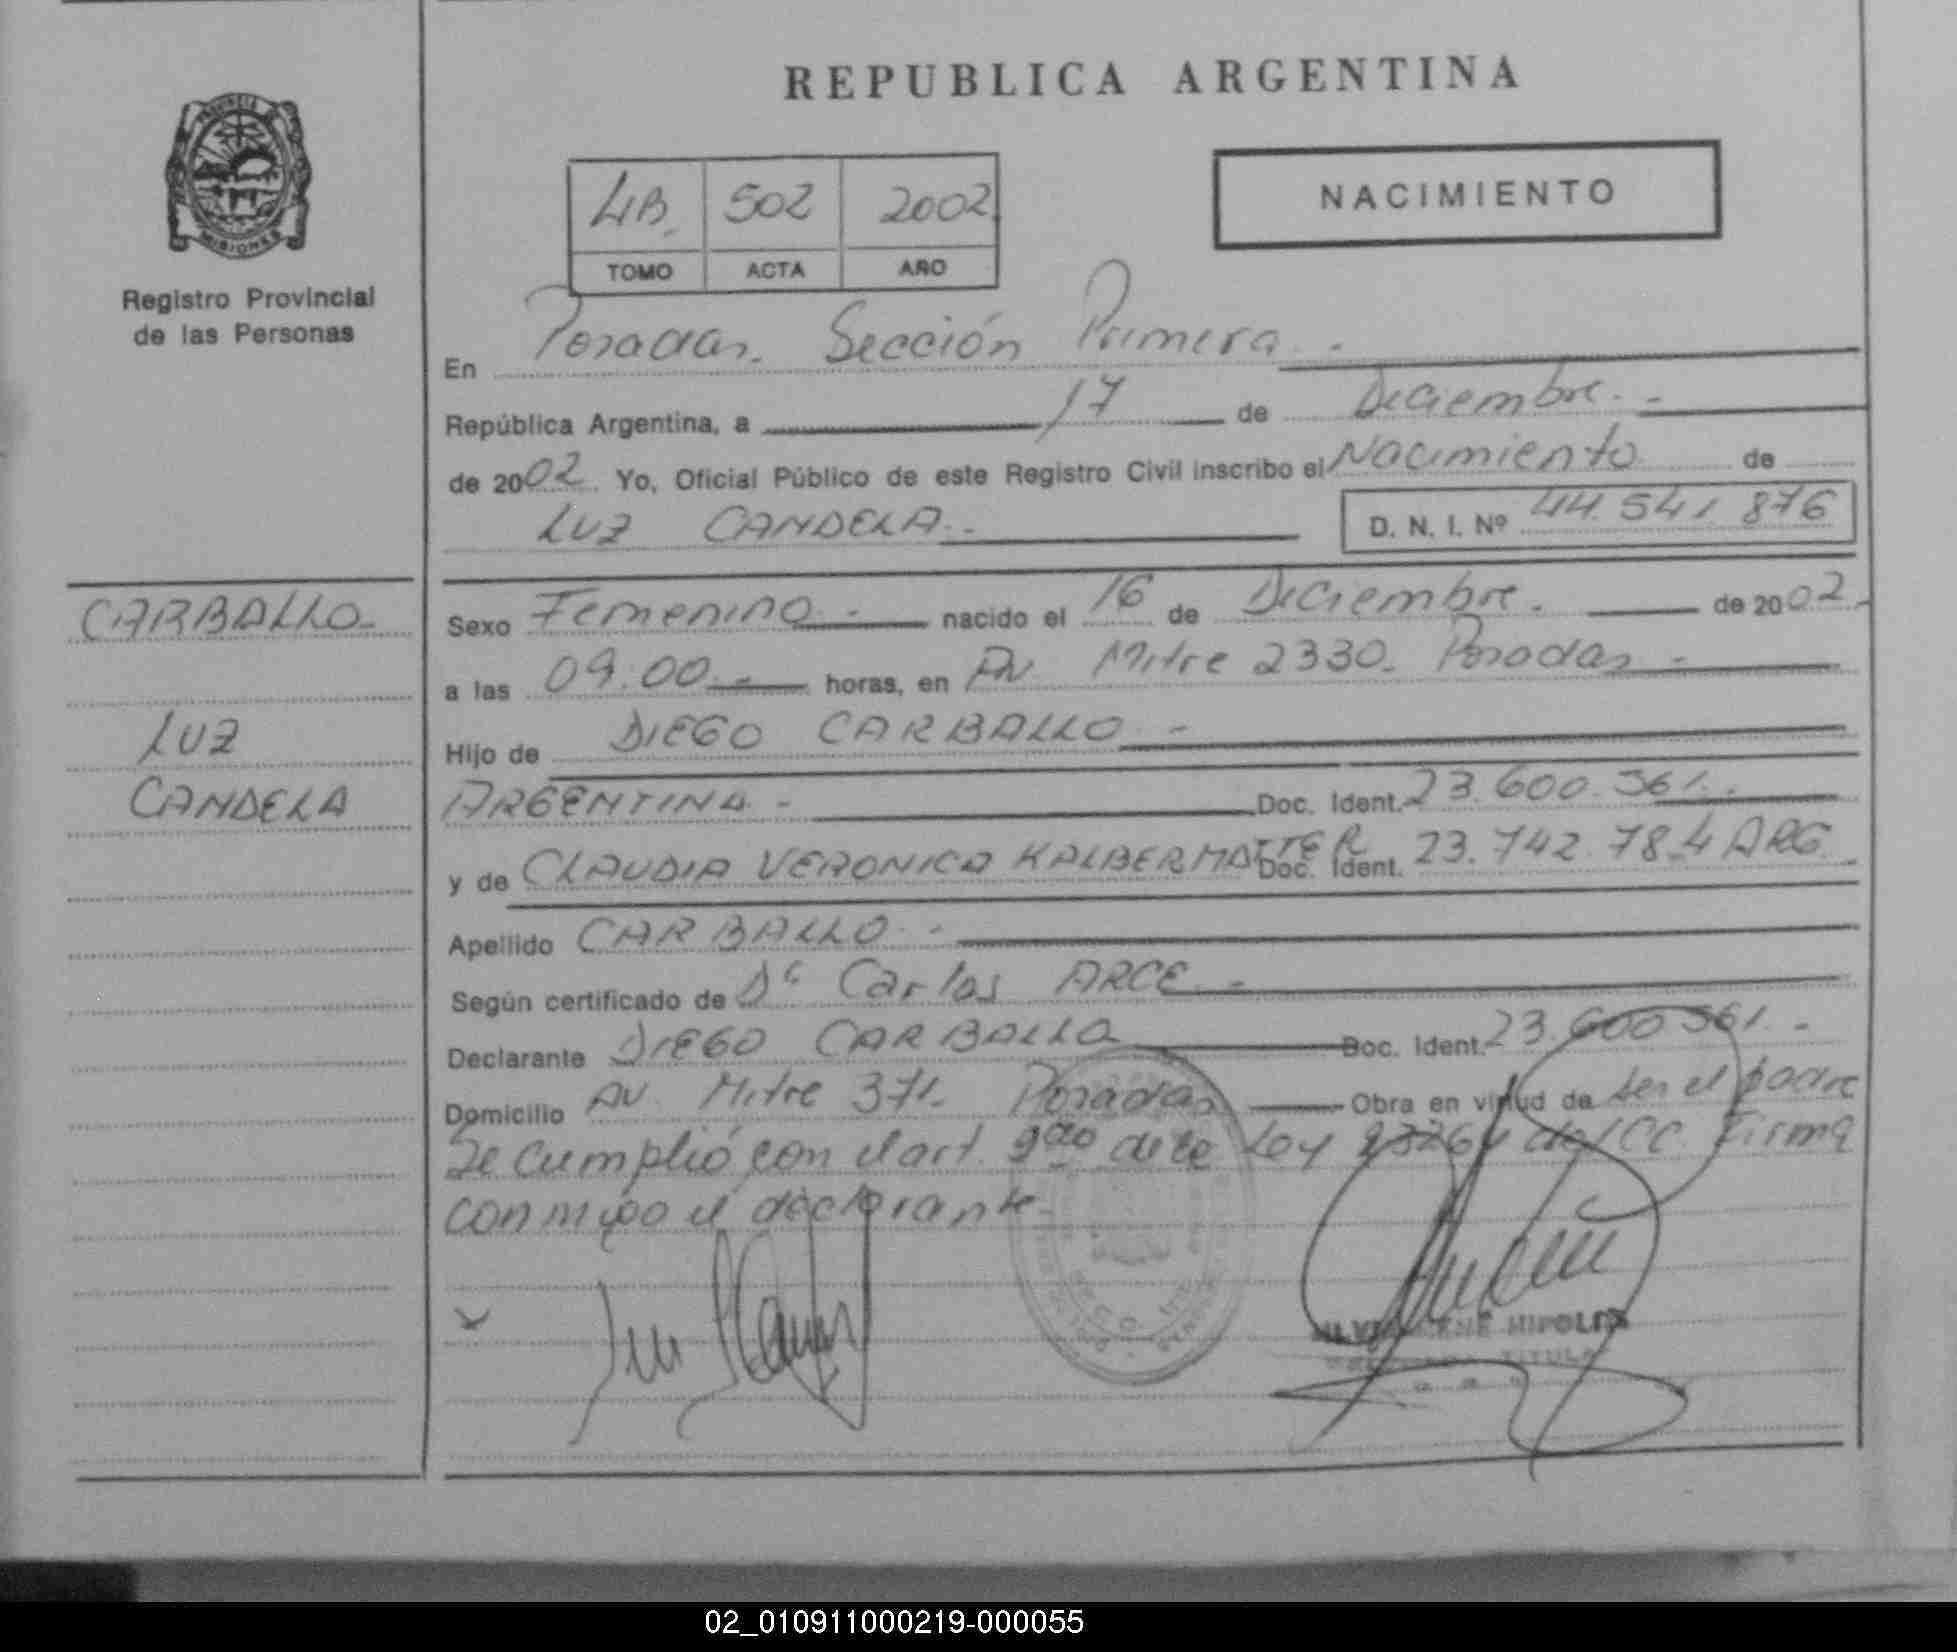 REPUBLICA ARGENTINA
PROVINCIA
MISIONES
Registro Provincial
de las Personas
4B. 502 2002
TOMO ACTA AÑO
NACIMIENTO
En Posadas. Sección Primera.-
República Argentina, a 17 de Diciembre.-
de 2002. Yo, Oficial Público de este Registro Civil inscribo el Nacimiento de
LUZ CANDELA.-
D. N. I. Nº 44.541.876
CARBALLO
LUZ
CANDELA
Sexo Femenino.- nacido el 16 de Diciembre. de 2002.-
a las 09.00.- horas, en AV. Mitre 2330. Posadas.-
Hijo de DIEGO CARBALLO.-
ARGENTINA.- Doc. Ident. 23.600.361.-
y de CLAUDIA VERONICA KALBERMATTER Doc. Ident. 23.742.784 ARG.
Apellido CARBALLO.-
Según certificado de Dr Carlos ARCE.-
Declarante DIEGO CARBALLO Doc. Ident. 23.600.361.-
Domicilio AV. Mitre 371. Posadas Obra en virtud de ser el padre
Se cumplió con el art. de la Ley 23264 del CC. Firma
conmigo el declarante.-
HIPOLITO
TITULAR
02_010911000219-000055